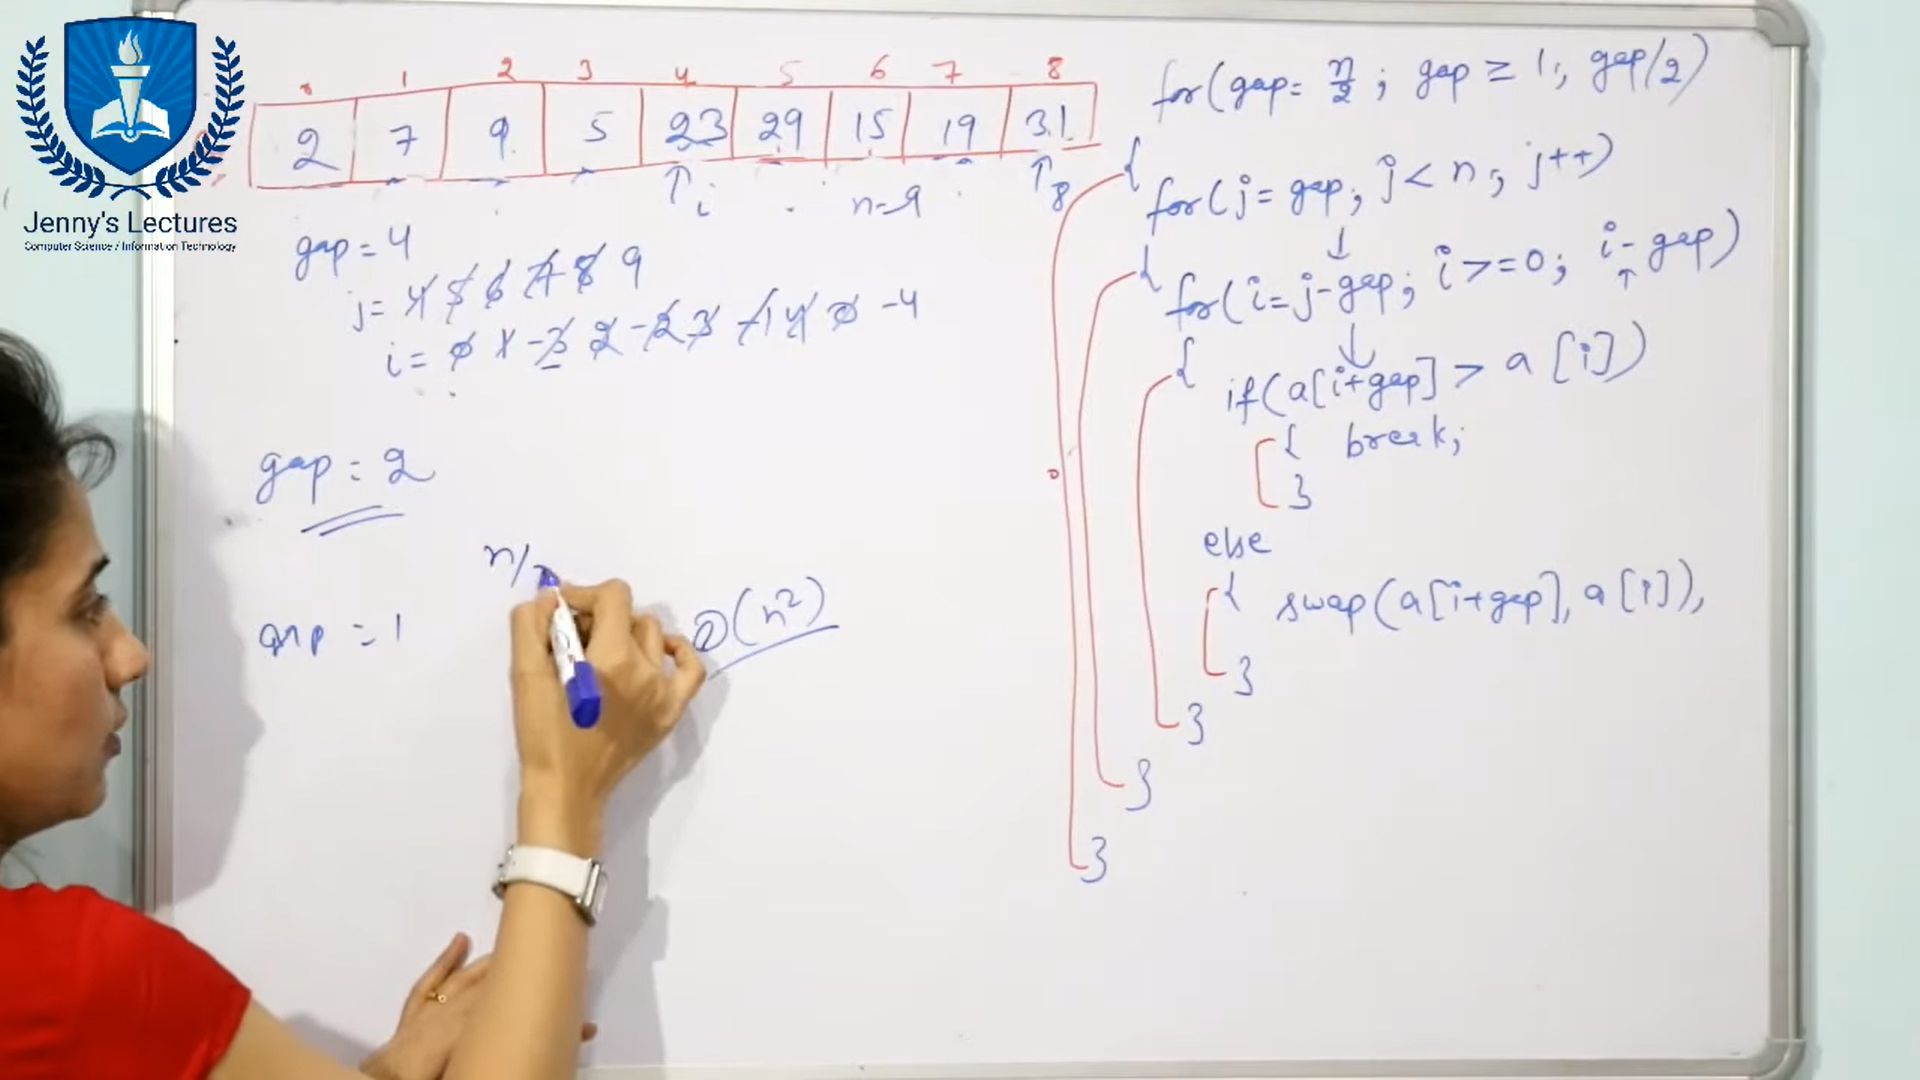 Jenny's Lectures
Computer Science / Information Technology
0 1 2 3 4 5 6 7 8
2 7 9 5 23 29 15 19 31
↑i n=9 ↑8
gap = 4
j = 4 5 6 7 8 9
i = 0 1 -3 2 -2 3 -1 4 0 -4
gap = 2
n/
gap = 1
O(n²)
for(gap = n/2 ; gap ≥ 1 ; gap/2)
{
for(j = gap ; j < n ; j++)
{
for(i = j-gap ; i >= 0 ; i - gap)
{
if(a[i+gap] > a[i])
{ break;
}
else
{ swap(a[i+gap], a[i]),
}
}
}
}